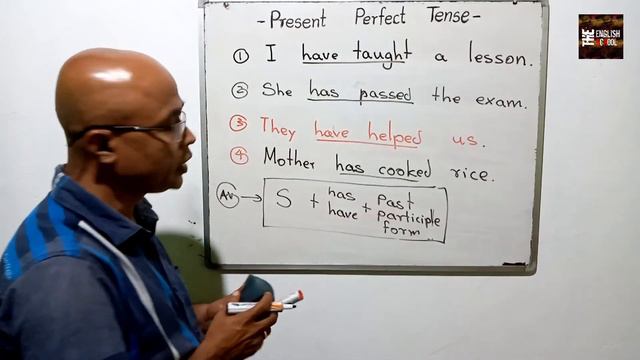 -Present Perfect Tense-
① I have taught a lesson.
② She has passed the exam.
③ They have helped us.
④ Mother has cooked rice.
AV → S + has have + past participle form
THE ENGLISH